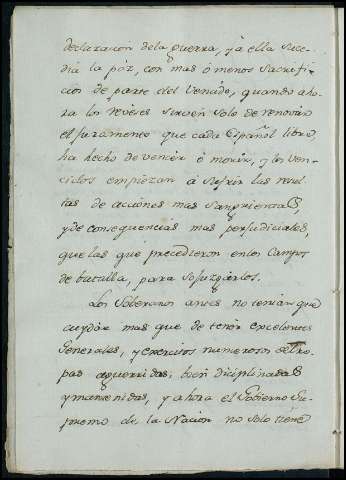 declaracion dela guerra, y à ella suce-
dia la páz, con mas ó menos sacrifi-
cios de parte del Vencido, quando aho-
ra los reveses sirven solo de renovár
el juramento que cada Español libre,
ha hecho de vencér ó morir, y los ven-
cidos empiezan à sufrir las resul-
tas de acciónes mas sangrientas,
y de consequencias mas perjudiciales,
que las que precedieron en los Campos
de batalla, para sojuzgárlos.
Los Soberanos antes no tenian que
cuydár mas que de tenér excelentes
Generales, y exercitos numerosos de tro-
pas aguerridas, bien diciplinadas
y mantenidas, y ahora el Gobierno Su-
premo de la Nacion no solo tiene